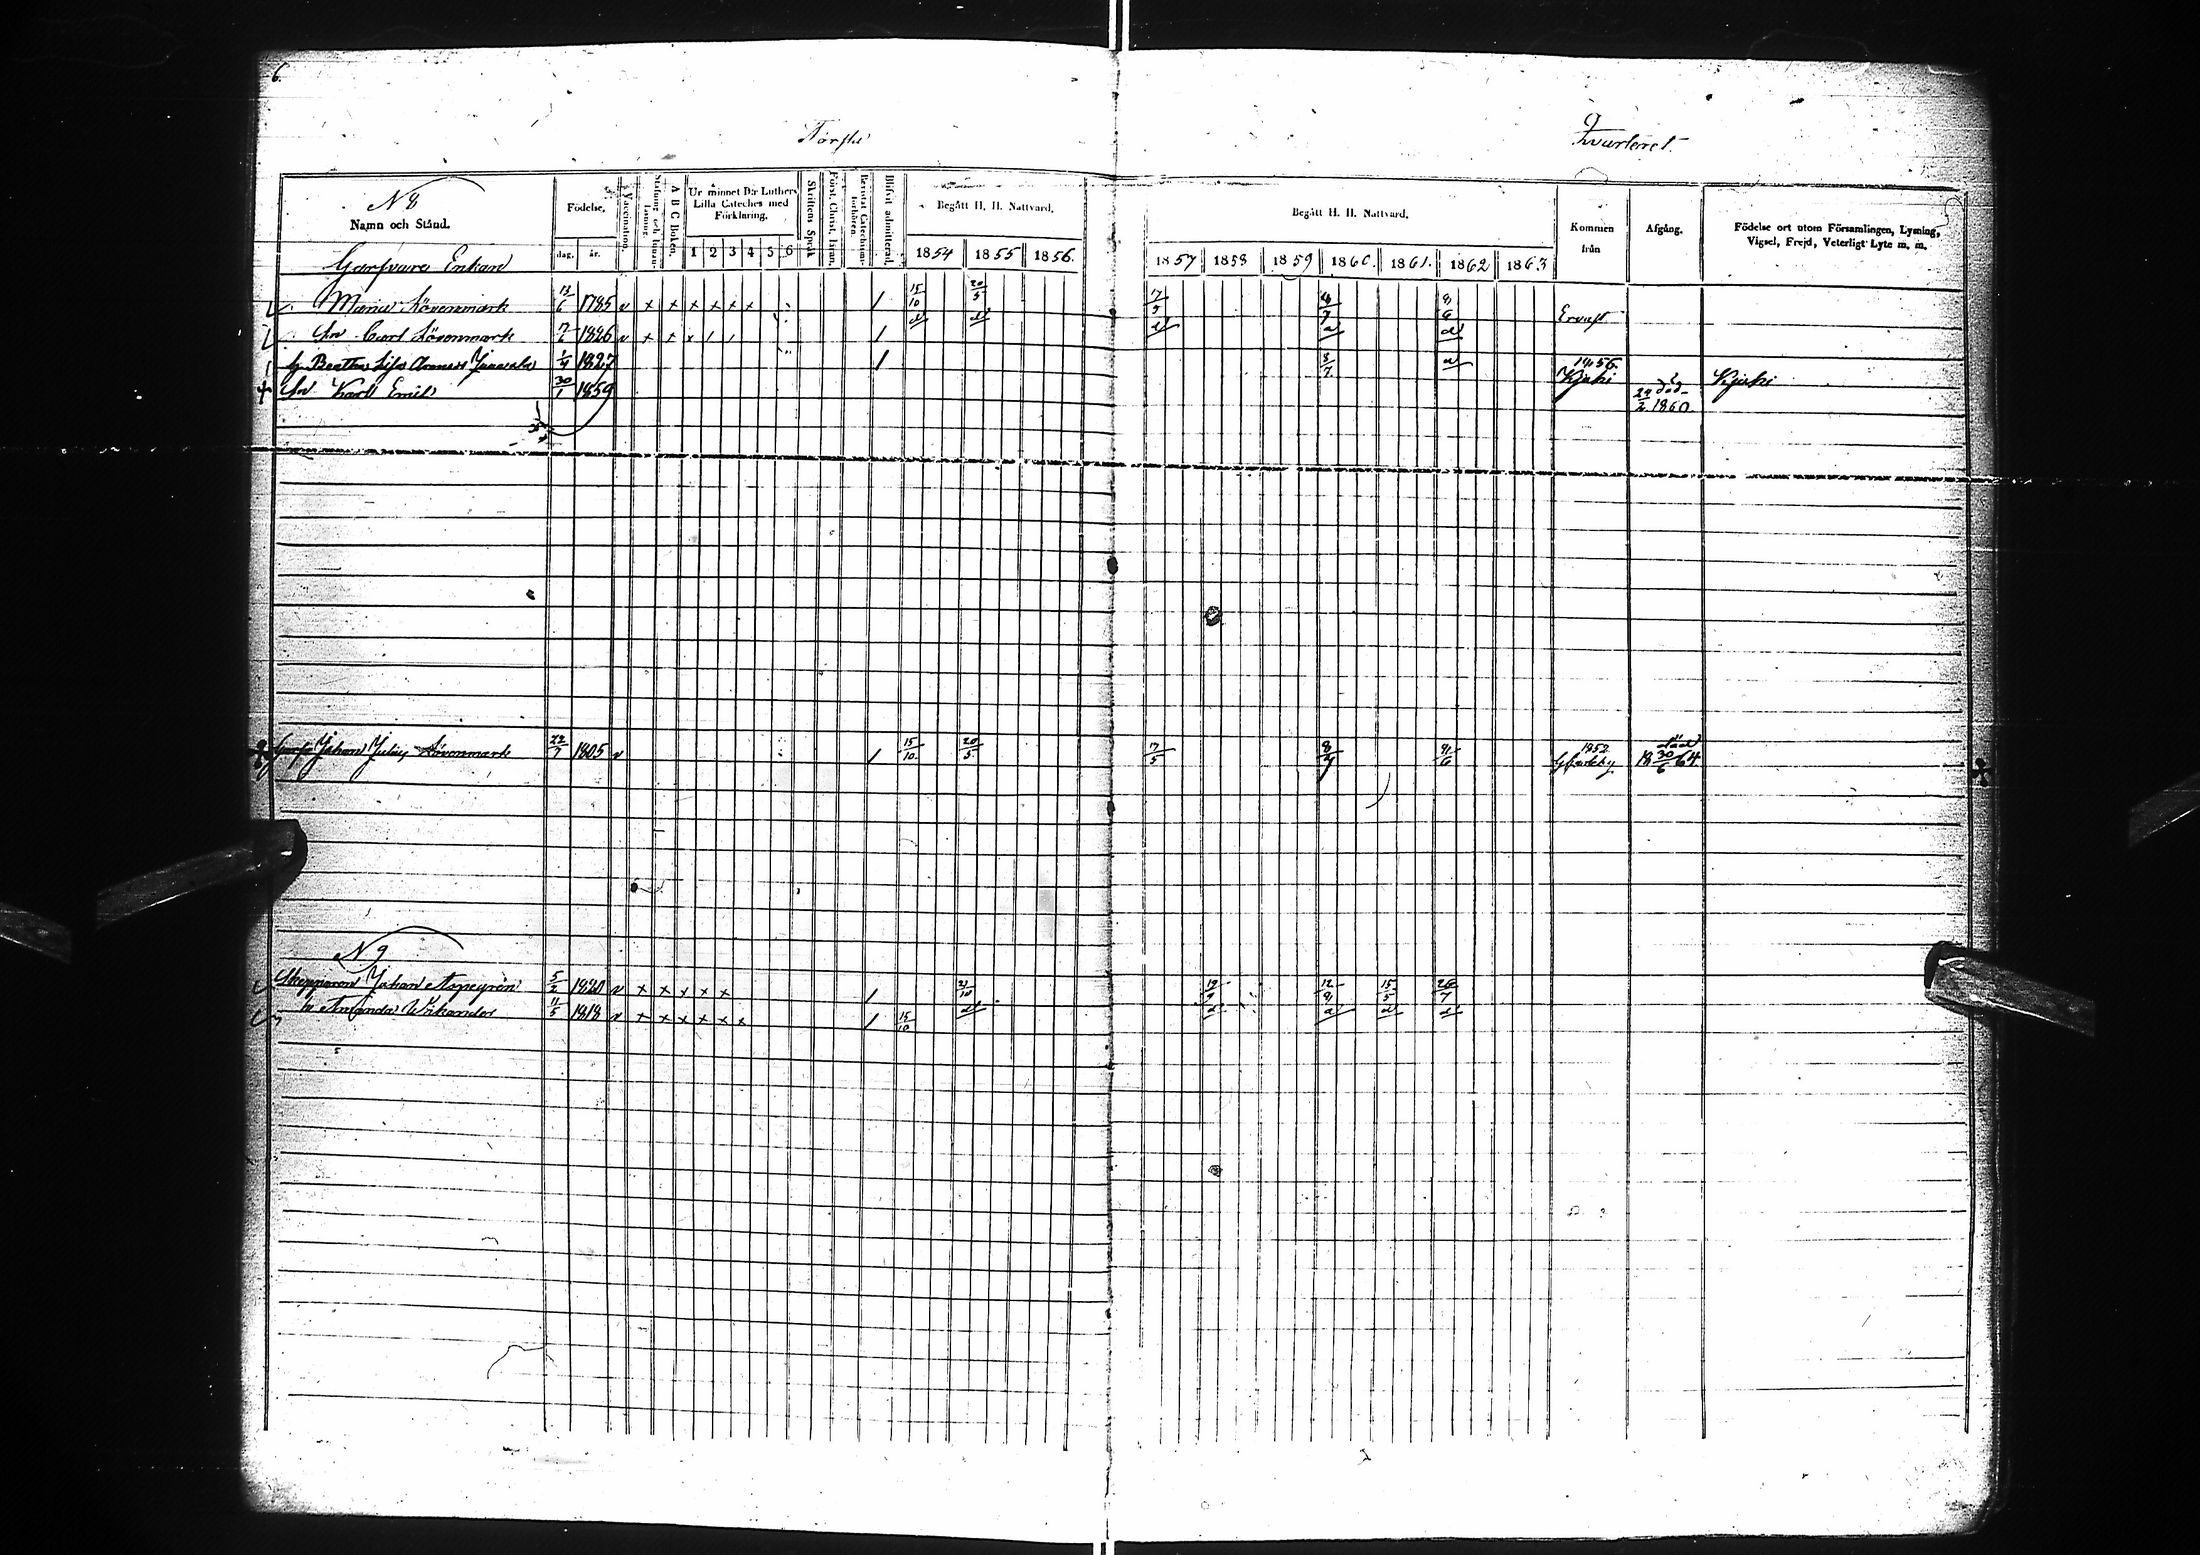 6.
Första Qvarteret.
N 8
Namn och Stånd.
Födelse.
dag. år.
Vaccination.
A B C Boken.
Ur minnet D:r Luthers Lilla Cateches med Förklaring.
1 2 3 4 5 6
Skriftens Språk
Blifvit admitterad.
Begått H. H. Nattvard.
1854 1855 1856.
Begått H. H. Nattvard.
1857 1858 1859 1860. 1861. 1862 1863
Kommen från
Afgång.
Födelse ort utom Församlingen, Lysning, Vigsel, Frejd, Veterligt Lyte m. m.
Garfvare Enkan
Maria Lövenmark 13/6 1785 v x x x x x x / 15/10 20/5 17/5 8/7 9/6
Sn Carl Lövenmark 7/6 1826 v x x x / / /
h Beatha Lisa 1/4 1827 / 8/7 1856. Kjuhi Kjuhi
Sn Karl Emil 30/1 1859 död 22/2 1860.
Johan Julius Lövenmark 22/7 1805 v / 15/10 20/5 7/5 8/7 9/6 1852 död 18 30/6 64
N 9
Skepparen Johan Aspegrén 5/2 1820 v x x x x x / 21/10 19/9 12/9 15/5 26/7
h Amanda Wikander 11/5 1818 v x x x x x x / 15/10